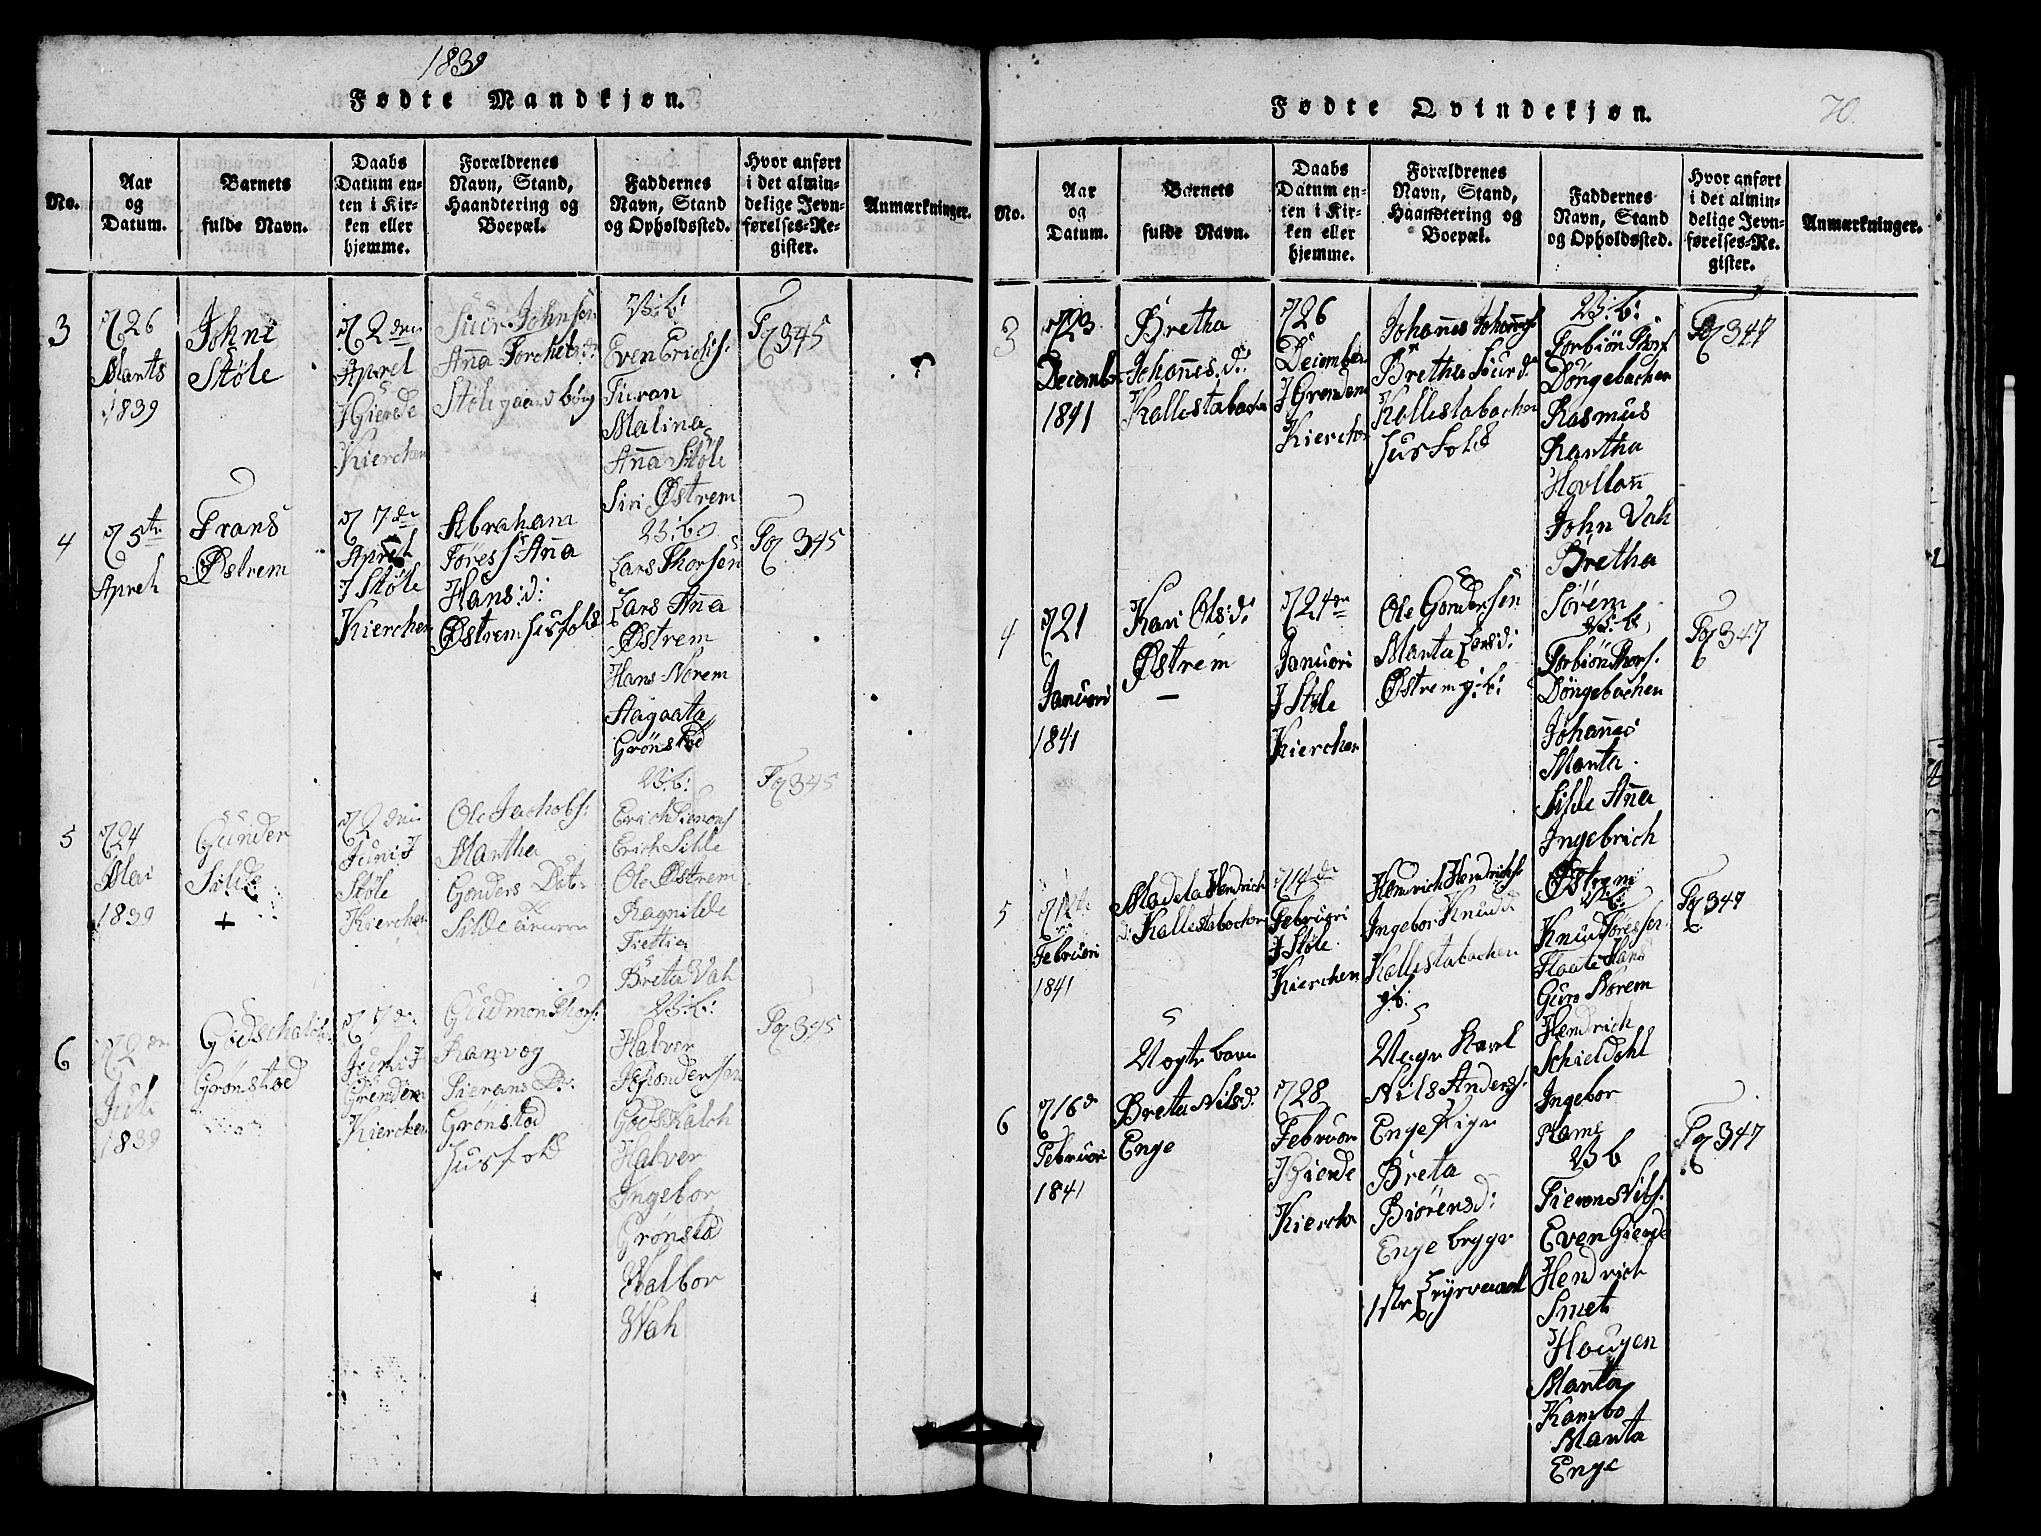 1839
Fødte Mandkjøn.
No.
Aar
og
Datum.
Barnets
fulde Navn.
Daabs
Datum en-
ten i Kir-
ken eller
hjemme.
Forældrenes
Navn, Stand,
Haandtering og
Boepæl.
Faddernes
Navn, Stand
og Opholdssted.
Hvor anført
i det almin-
delige Jevn-
førelses-Re-
gister.
Anmærkninger.
3
26
Marts
1839
Johne
Støle
2den
Aprel
I Gierde
Kierchen
Siur Johnsen
Anna Torchels d:
Støle gaardbrug
V: b:
Even Erichs:
Tieran
Malina
Anna Støle
Siri Østrem
Fq 345
4
5te
Apreh
Frans
Østrem
7de
Apreh
I Støle
Kierchen
Abraham
Føress Anna
Hans:d:
Østrem Husfolk
V: b
Lars Thorsen
Lars Anna
Østrem
Hans Norem
Aagaata
Grönstad
Fq 345
5
24
Mai
1839
Gunder
Silde
+
2den
Juni I
Støle
Kierchen
Ole Jachobs:
Mantha
Gonders Dat
Silde
V: b:
Erich Simons
Erich Silde
Ole Østrem
Ragnilde
Breta Vah
Fq 345
6
2den
Juli
1839
Godschalch
Grönstad
7de
Juli I
Grinden
Kierchen
Gudmon Thors:
Ranvog
Tierans D:
Grönstad
Husfolk
V: b:
Halver
Godskalch
Halver
Ingebor
Grönstad
Valbor
Vah
Fq 345
Fødte Qvindekjøn.
70.
No.
Aar
og
Datum.
Barnets
fulde Navn.
Daabs
Datum en-
ten i Kir-
ken eller
hjemme.
Forældrenes
Navn, Stand,
Haandtering og
Boepæl.
Faddernes
Navn, Stand
og Opholdssted.
Hvor anført
i det almin-
delige Jevn-
førelses-Re-
gister.
Anmærkninger.
3
23
Decembr
1841
Bretha
Johannes.d:
Kallestabachen
26
Decembr
I Grinden
Kierchen
Johannes Johanns
Bretha Siur d
Kallestabachen
Husfolk
V: b:
Torbiön Thors
Döngebachen
Rasmus
Rantha
John Vah
Bretha
Sörem
Fq 347
4
21
Januari
1841
Kari Ols:d:
Østrem
24en
Januari
I Støle
Kierchen
Ole Gondersen
Manta Lars d:
Østrem g: b:
V: b:
Torbiön Thors:
Döngebachen
Johannes
Manta
Silde Anna
Ingebrich
Østrem
Fq 347
5
Februari
1841
Madela Hendrich
d: Kallestabachen
14de
Februari
I Støle
Kierchen
Hendrich Hendrichs
Ingebor Knuds d
Kallestabachen
g: b:
V: b:
Knud Föressen
Flaate Hans
Guro Norem
Hendrich
Schieldahl
Ingebor
Rame
Fq 347
6
16d
Februari
1841
Uægte barn
Breta Nils d:
Enge
28
Februar
I Gierde
Kierchen
Uegte Karl
Nils Anders:
Enge Pige
Breta
Biörens d:
Enge
V b
Tieran Nils:
Even Gierde
Hendrich
Smet
Hougen
Manta
Kambo
Manta
Enge
Fq 347